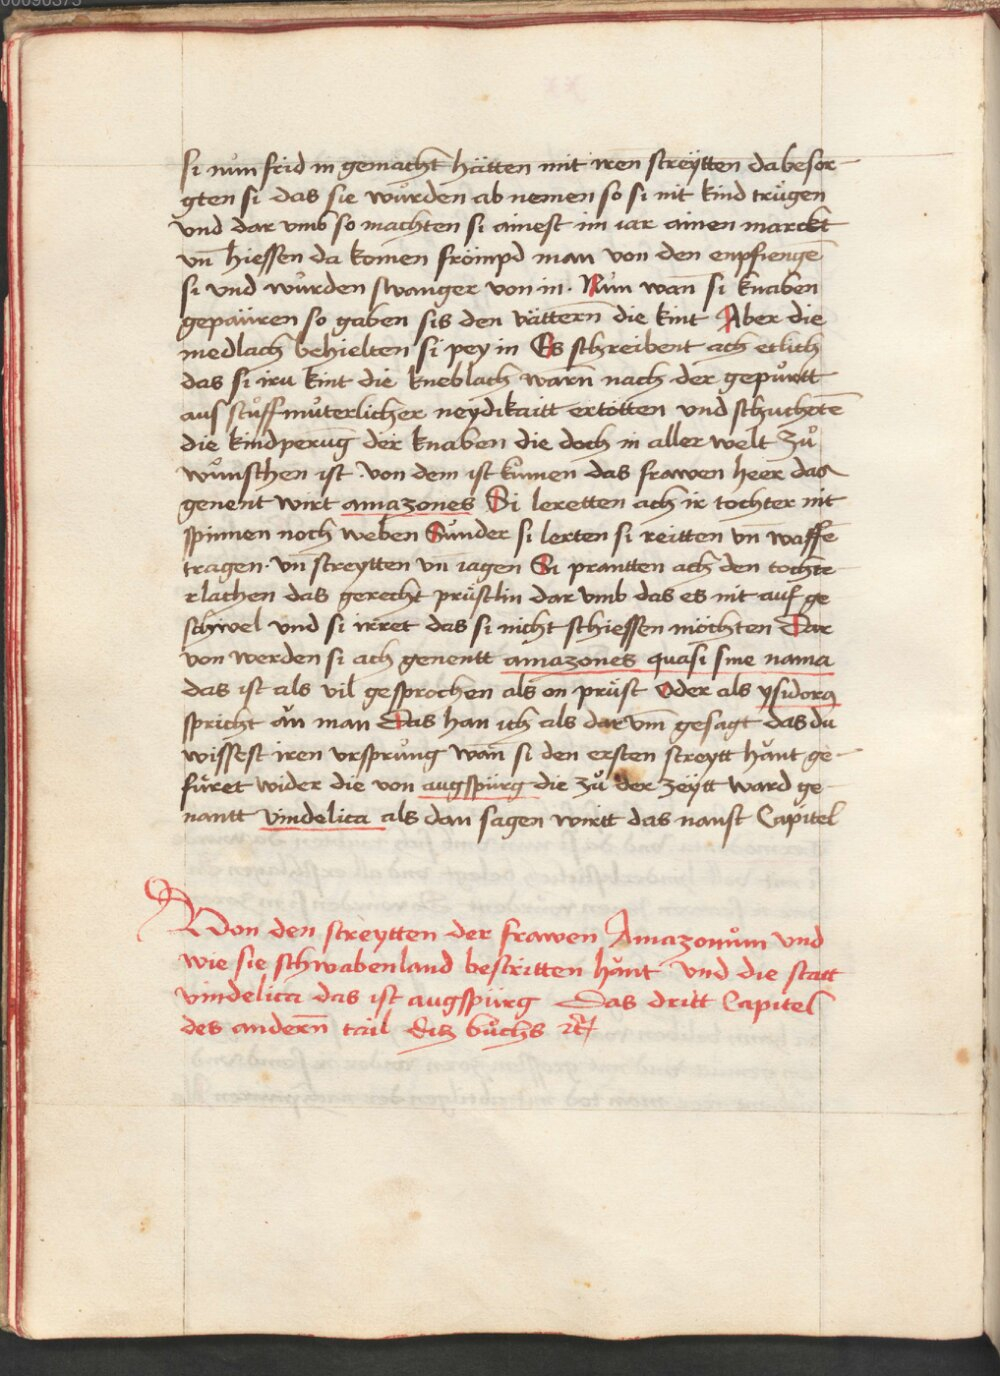 00090375
si nŭn frid in gemacht hätten mit iren streÿtten da besor-
gten si das sie wŭrden ab nemen so si nit kind trŭgen
vnd dar vmb so machten si ainest im iar ainen marckt
vn̄ hiessen da komen frömpd man von den enpfiengē
si vnd wŭrden swanger von in. Nŭn wan̄ si knaben
gepaüren so gaben sis den vättern̄ die kint Aber die
medlach behielten si pey in Es schreibent ach etlich
das si iru kint die kneblach warn̄ nach der gepŭrtt
aus stŭffmŭterlicher neydikaitt ertötten vnd schuchtē
die kindperung der knaben die doch in aller welt zŭ
wŭnschen ist. von dem ist kumen das frawen heer das
genent wirt amazones Si leretten ach ir tochter nit
spinnen noch weben Sŭnder si lerten si reitten vn̄ waffē
tragen. vn̄ streytten vn̄ iagen Si prantten ach den tochte-
rlachen das gerecht prüstlin dar vmb das es nit auf ge
schwel vnd si irret das si nicht schiessen möchten Dar
von werden si ach genentt amazones quasi sine nama
das ist als vil gesprochen als on prüst Oder als ysidorꝯ
spricht än man Das han ich als dar vm̄ gesagt das du
wissest iren vrsprŭng wan̄ si den ersten streytt hänt ge-
füret wider die von augspürg die zŭ der zeÿtt ward ge-
nantt vindelica als dan sagen wirtt das nanst Capitel
Von den streytten der frawen Amazonŭm vnd
wie sie schwabenland bestritten hänt vnd die statt
vindelica das ist augspürg Das dritt Capitel
des andern̄ tail diß bŭchs ꝛc̄